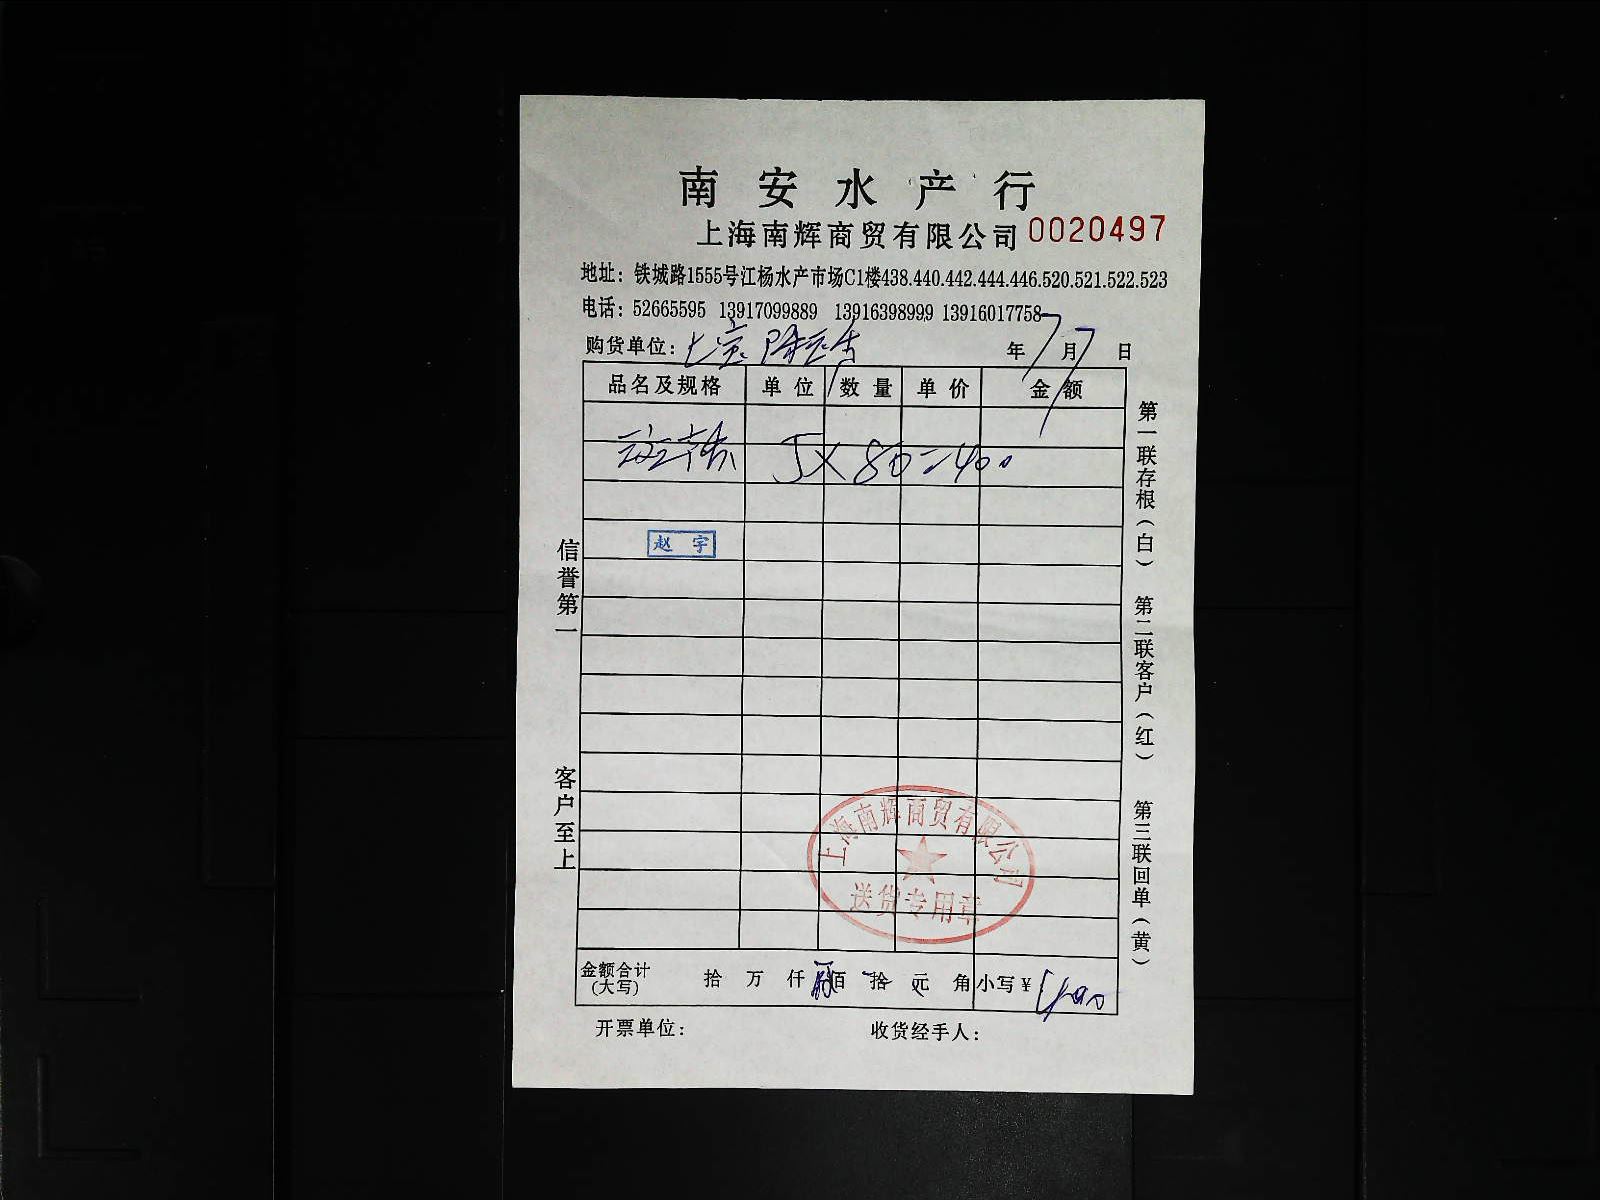 南安水产行
上海南辉商贸有限公司 0020497
地址：铁城路1555号江杨水产市场C1楼438.440.442.444.446.520.521.522.523
电话：52665595 13917099889 13916398999 13916017758
购货单位： 年7月7日
品名及规格 单位 数量 单价 金额
5×80=400
赵宇
信誉第一
客户至上
第一联存根（白）
第二联客户（红）
第三联回单（黄）
上海南辉商贸有限公司
送货专用章
金额合计（大写） 拾 万 仟 肆佰 拾 元 角 小写￥：400
开票单位： 收货经手人：